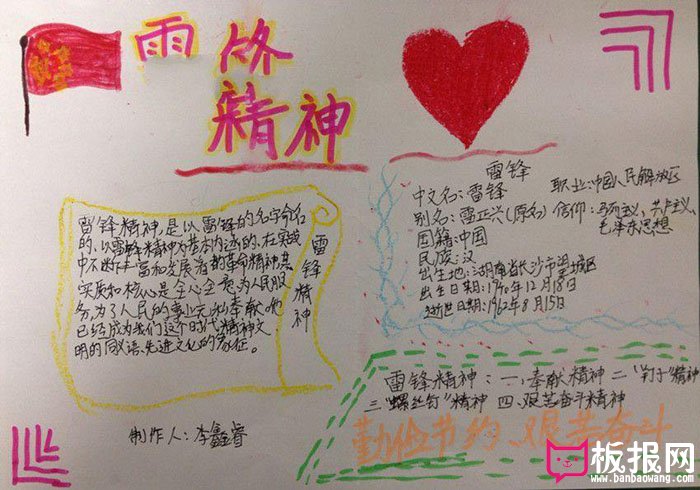 雷锋
精神
雷锋精神,是以雷锋的名字命名
的、以雷锋精神为基本内涵的、在实践
中不断丰富和发展着的革命精神,其
实质和核心是全心全意为人民服
务,为了人民的事业无私奉献,他
已经成为我们这个时代精神文
明的同义语、先进文化的象征。
雷锋精神
制作人:李鑫睿
雷锋
中文名:雷锋
职业:中国人民解放区
别名:雷正兴(原名)
信仰:马列主义、共产主义、
毛泽东思想
国籍:中国
民族:汉
出生地:湖南省长沙市望城区
出生日期:1940年12月18日
逝世日期:1962年8月15日
雷锋精神:一、奉献精神 二、"钉子"精神
三、"螺丝钉"精神 四、艰苦奋斗精神
勤俭节约、艰苦奋斗
板报网
www.banbaowang.com